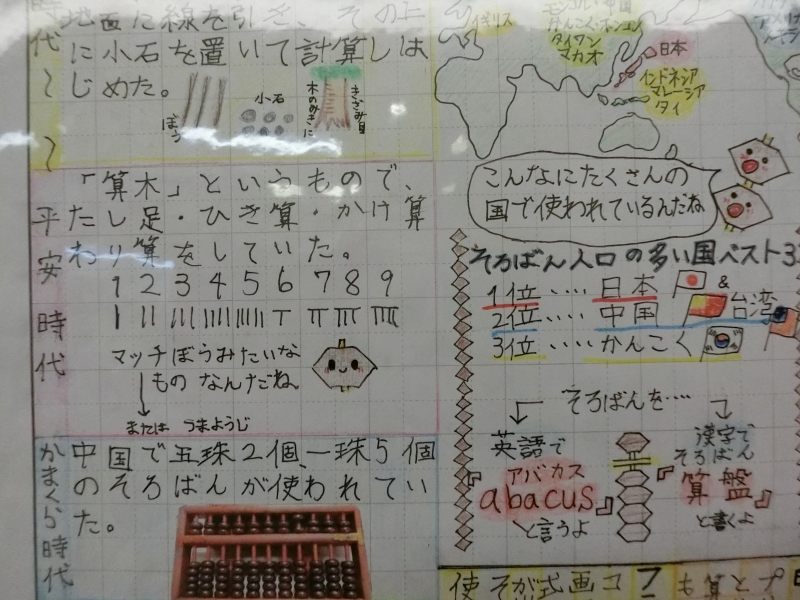 時代〜
地面に線を引き、その上
に小石を置いて計算しは
じめた。
ぼう
小石
木のみきに
きざみ目
平安時代
「算木」というもので、
たし足・ひき算・かけ算
わり算をしていた。
1 2 3 4 5 6 7 8 9
マッチぼうみたいな
ものなんだね。
または うまようじ
かまくら時代
中国で五珠2個、一珠5個
のそろばんが使われてい
た。
イギリス
タイワン
マカオ
日本
インドネシア
マレーシア
タイ
こんなにたくさんの
国で使われているんだね
そろばん人口の多い国ベスト3
1位‥‥日本
2位‥‥中国 & 台湾
3位‥‥かんこく
そろばんを‥‥
英語で
アバカス
『abacus』
と言うよ
漢字で
そろばん
『算盤』
と書くよ